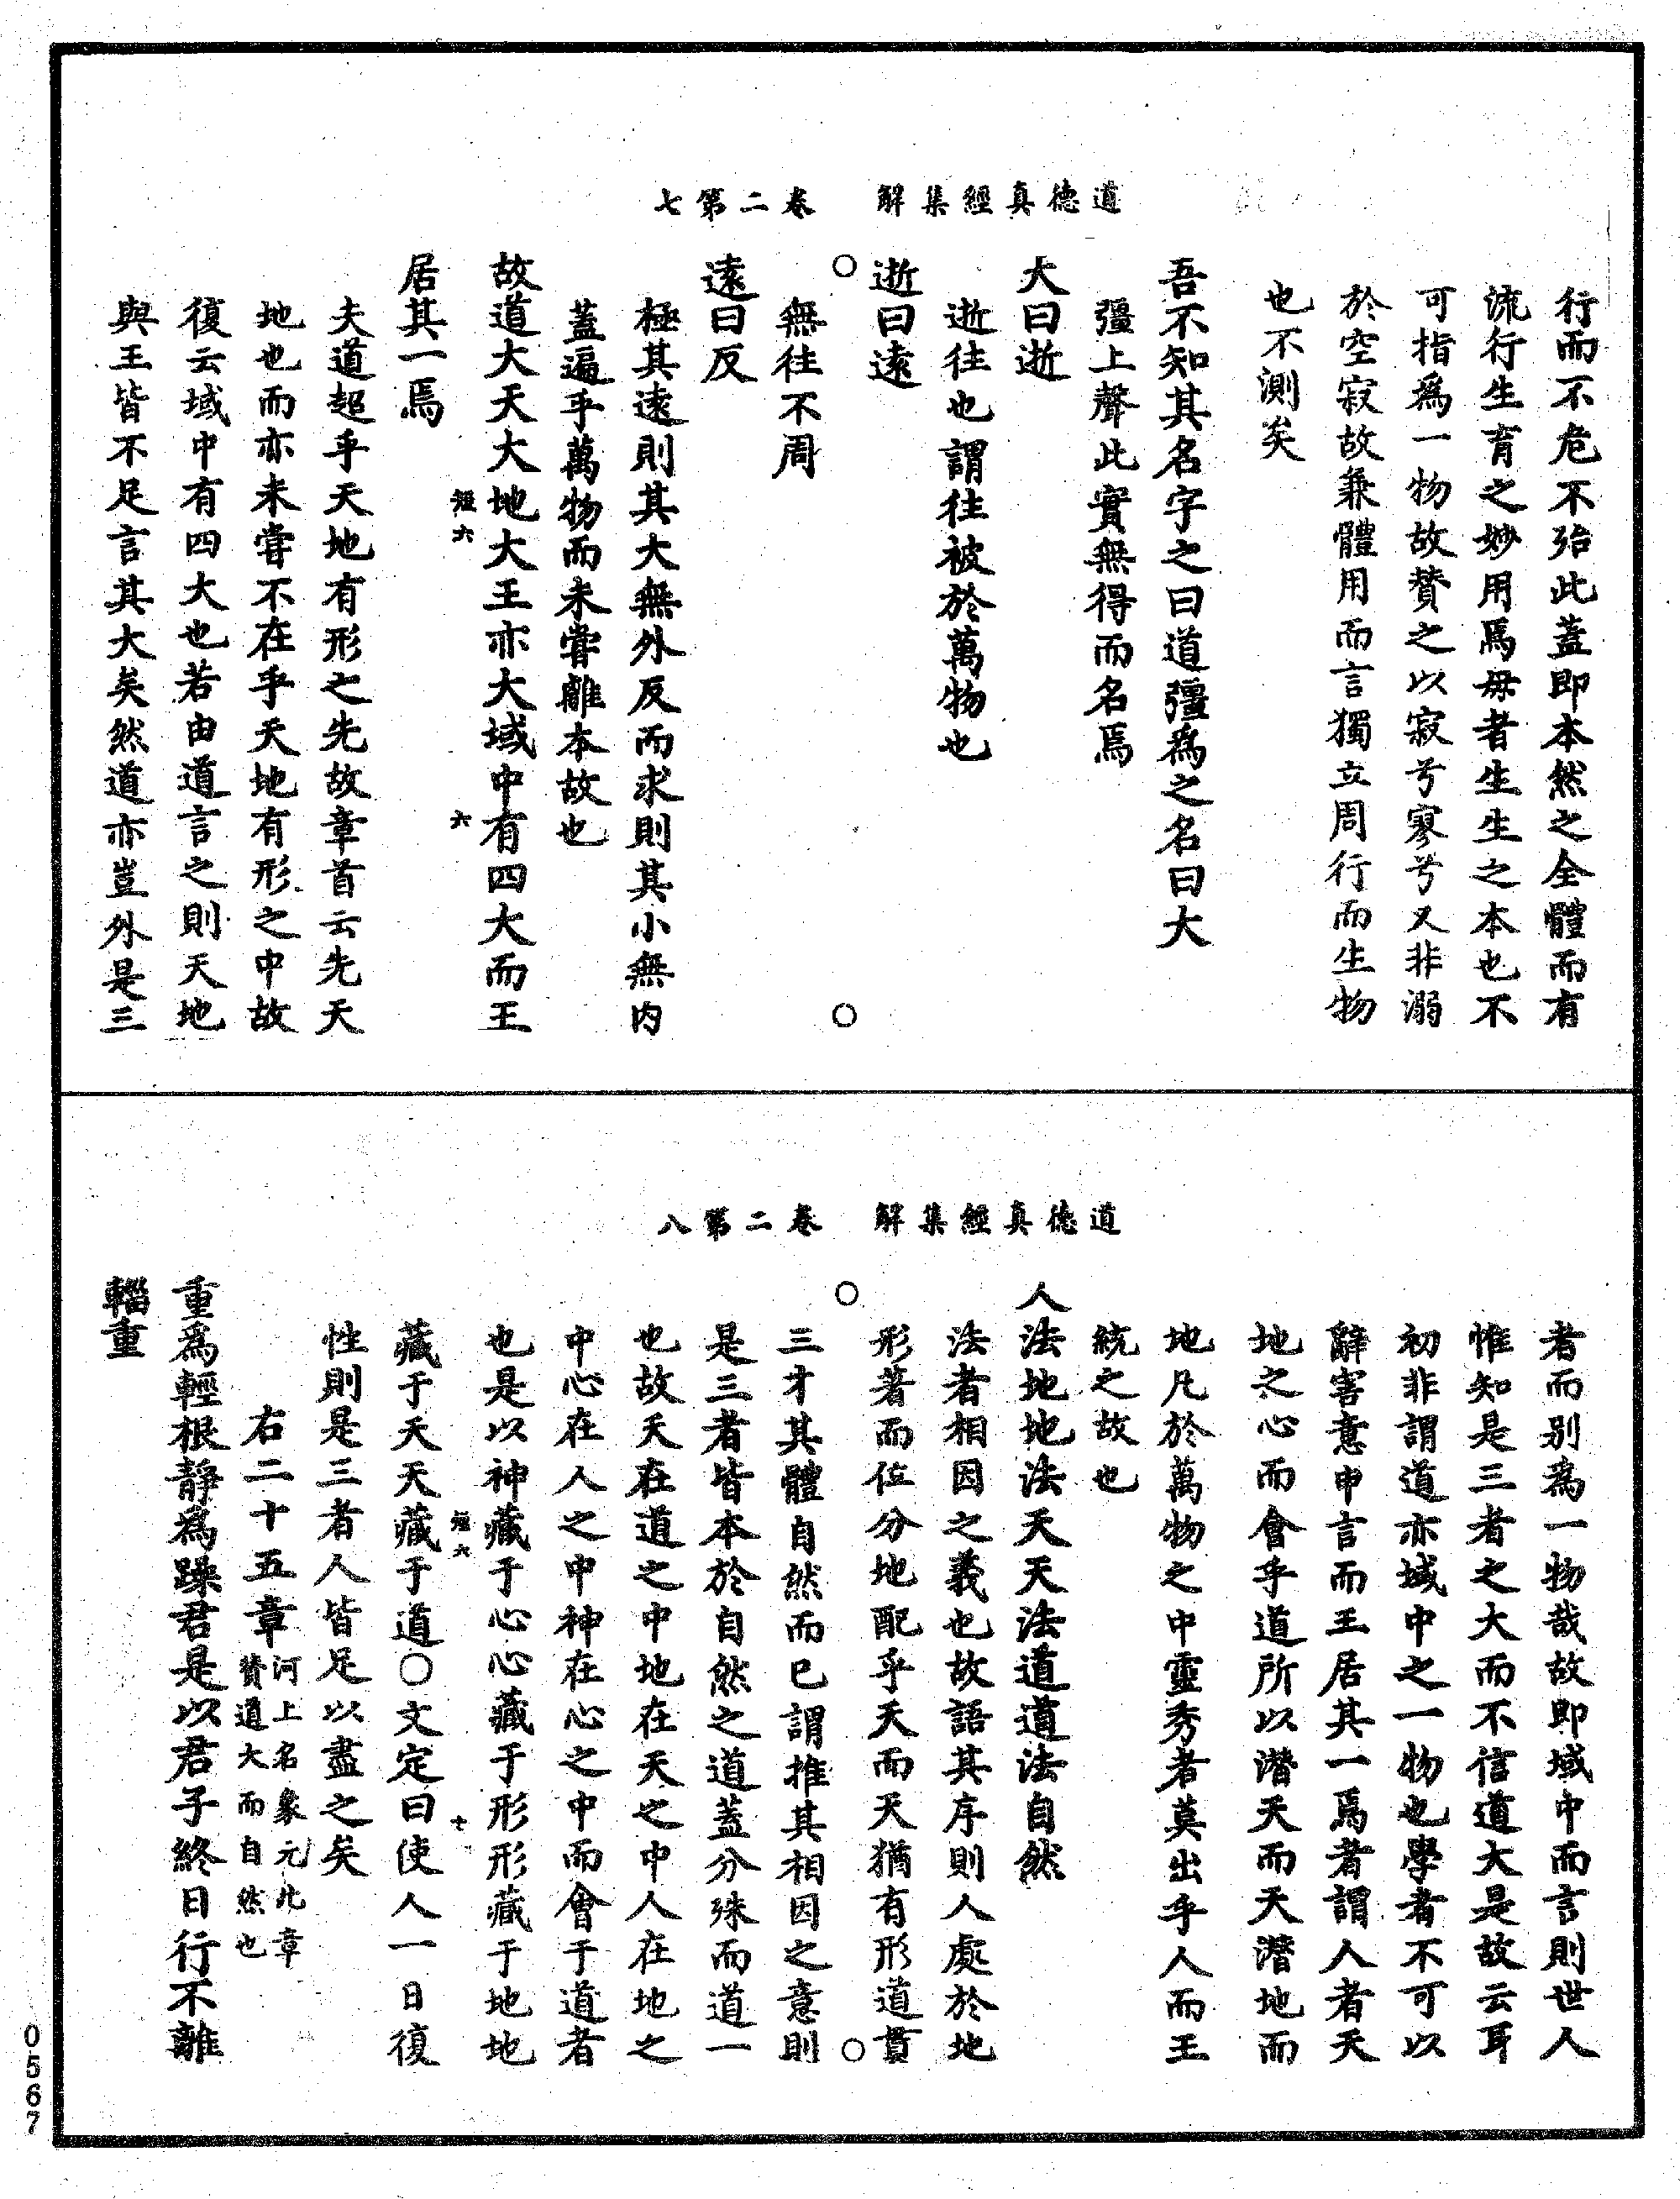 道德真經集解　卷二第七
行而不危不殆此蓋即本然之全體而有
流行生育之妙用焉毋者生生之本也不
可指爲一物故贊之以寂兮寥兮又非溺
於空寂故兼體用而言獨立周行而生物
也不測矣
吾不知其名字之曰道彊爲之名曰大
彊上聲此實無得而名焉
大曰逝
逝往也謂往被於萬物也
逝曰遠
○　○
無往不周
遠曰反
極其遠則其大無外反而求則其小無内
蓋遍乎萬物而未嘗離本故也
故道大天大地大王亦大域中有四大而王
短六　六
居其一焉
夫道超乎天地有形之先故章首云先天
地也而亦未嘗不在乎天地有形之中故
復云域中有四大也若由道言之則天地
與王皆不足言其大矣然道亦豈外是三
道德真經集解　卷二第八
者而别爲一物哉故即域中而言則世人
惟知是三者之大而不信道大是故云耳
初非謂道亦域中之一物也學者不可以
辭害意申言而王居其一焉者謂人者天
地之心而會乎道所以潛天而天潛地而
地凡於萬物之中靈秀者莫出乎人而王
統之故也
人法地地法天天法道道法自然
法者相因之義也故語其序則人處於地
形著而位分地配乎天而天猶有形道貫
○　○
三才其體自然而已謂推其相因之意則
是三者皆本於自然之道蓋分殊而道一
也故天在道之中地在天之中人在地之
中心在人之中神在心之中而會于道者
也是以神藏于心心藏于形形藏于地地
短六　七
藏于天天藏于道○文定曰使人一日復
性則是三者人皆足以盡之矣
右二十五章河上名象元此章
贊道大而自然也
重爲輕根靜爲躁君是以君子終日行不離
輜重
0567